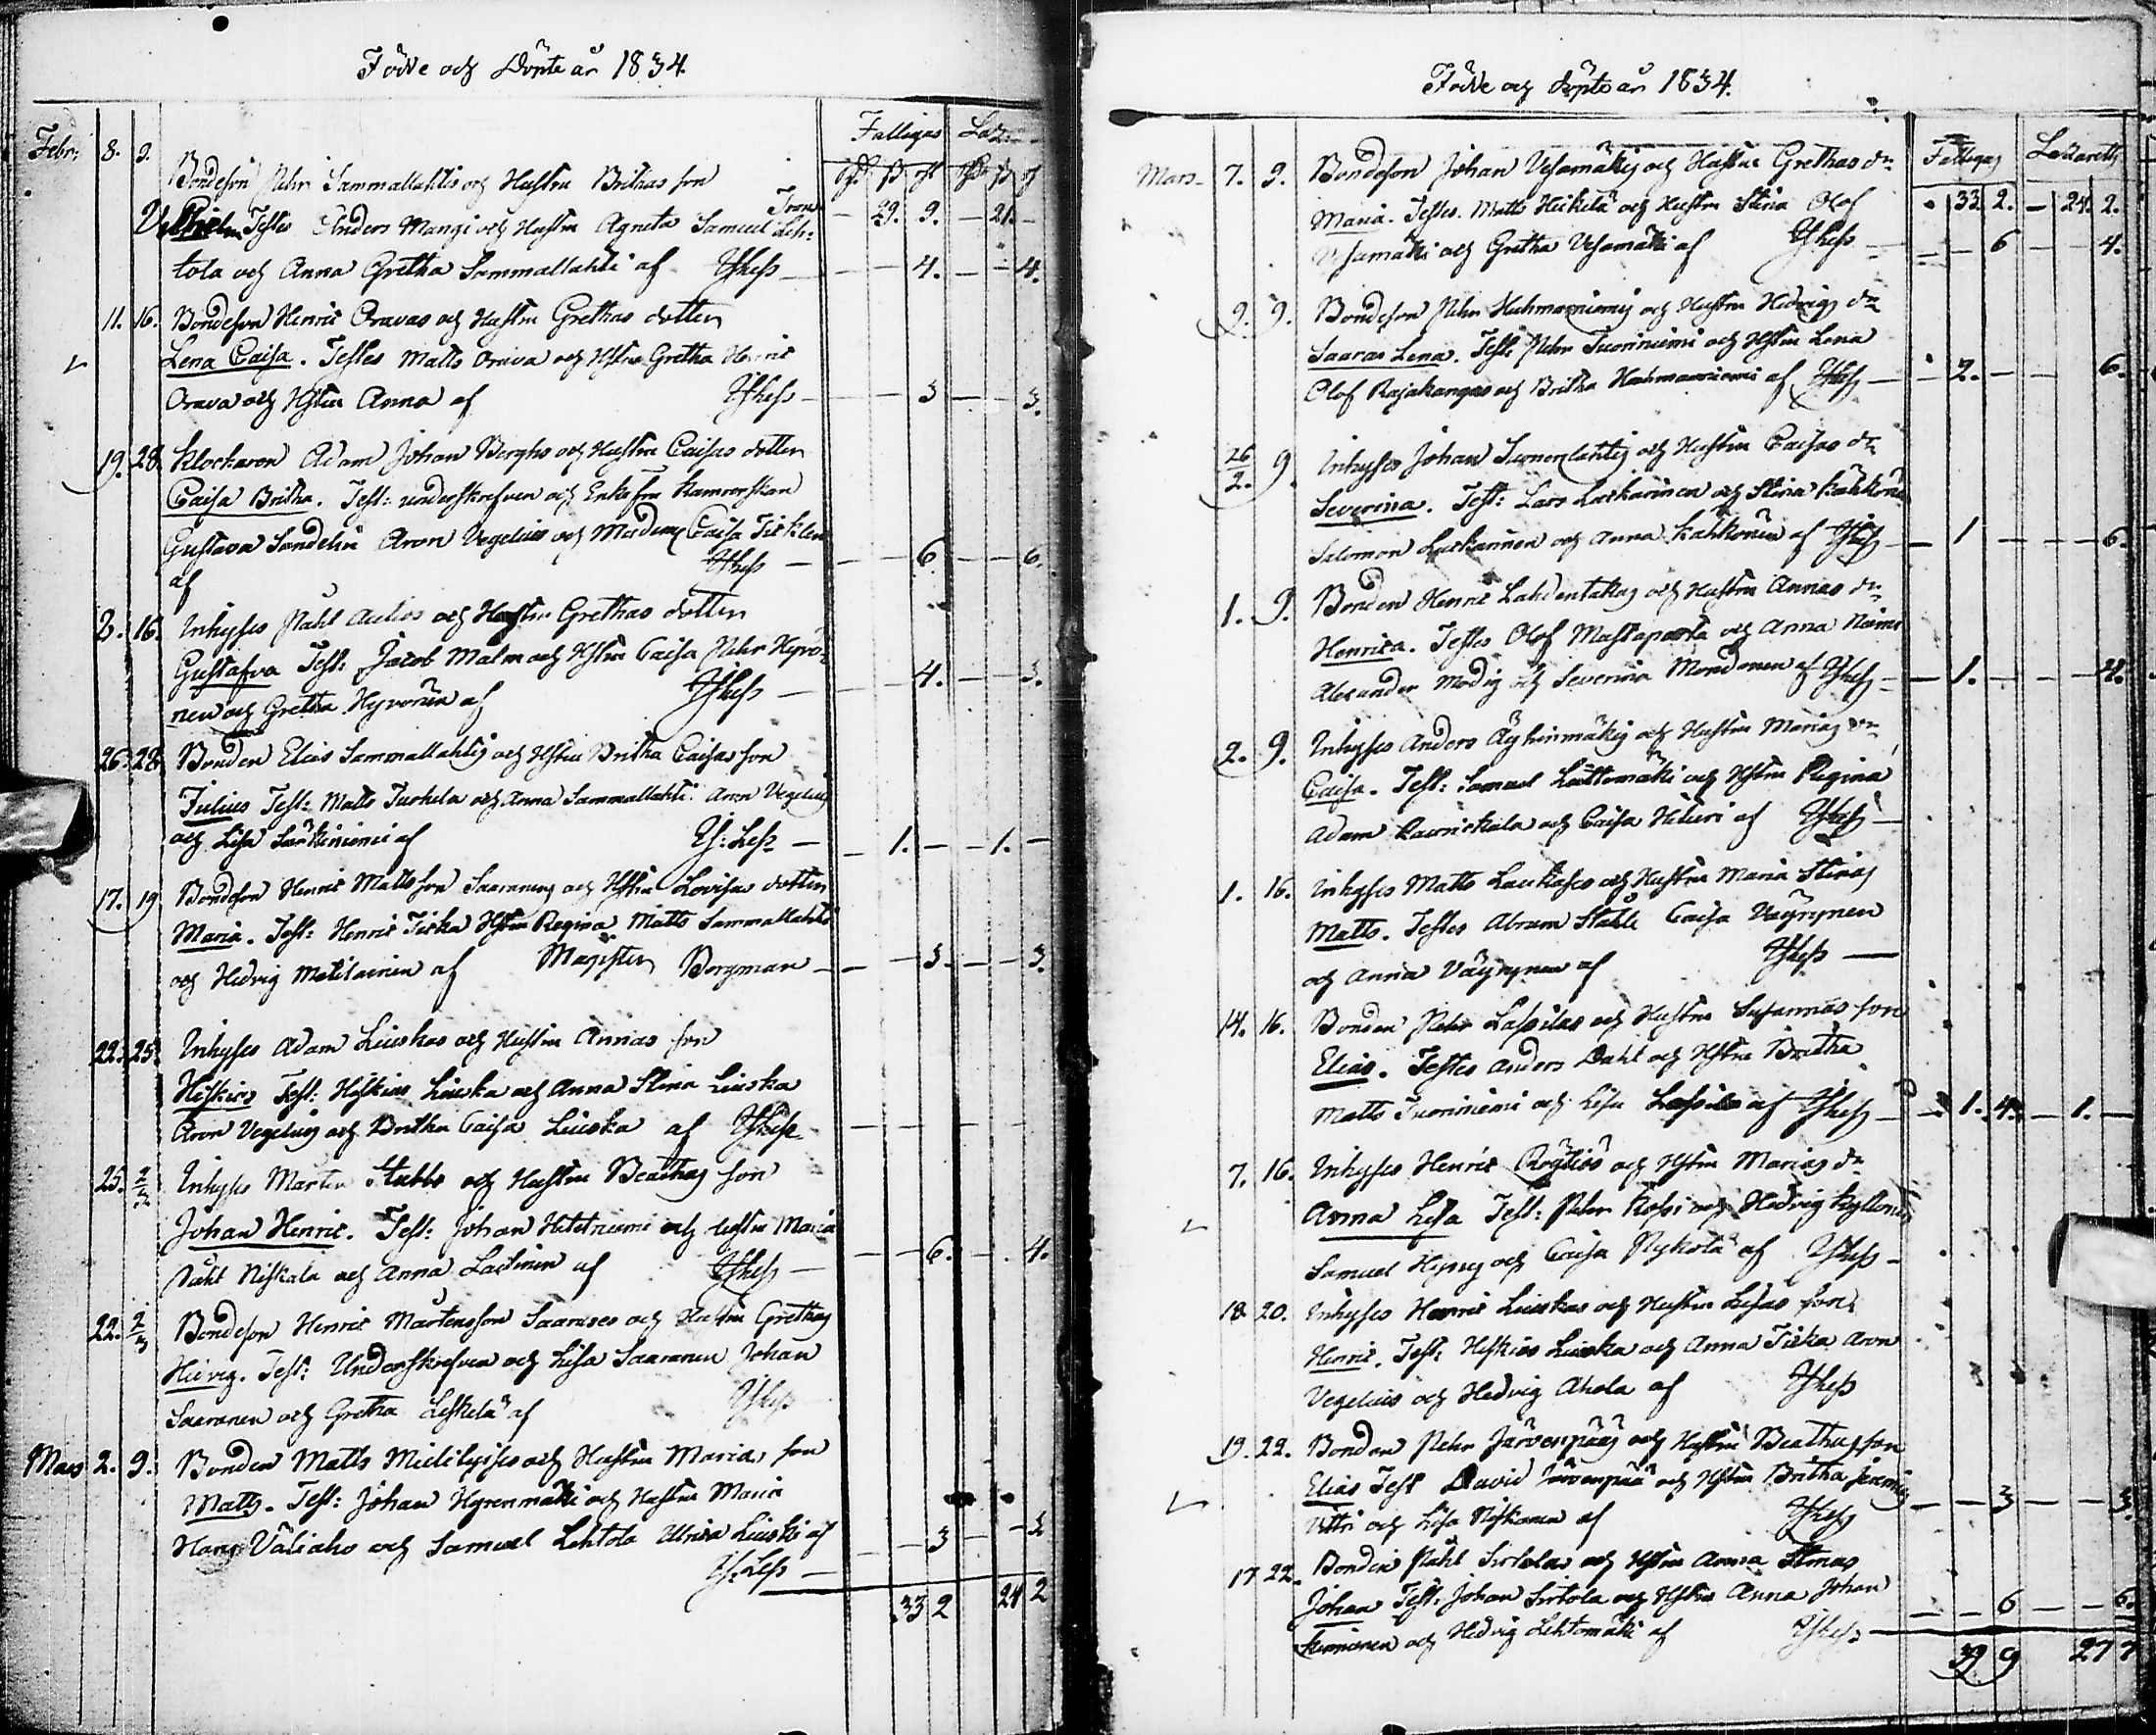 Födde och Döpte år 1834.
Fattigas Laz:
Febr: 8. 9. Bondeson Pehr Sammallahtis och Hustru Brithas son
Vilhelm Testes Anders Mangi och Hustru Agneta Samuel Leh= 29. 9. 21.
tola och Anna Gretha Sammallahti af 4. 4.
11. 16. Bondeson Henric Oravas och Hustru Grethas dotter
Lena Caisa. Testes Matts Orava och Hstru Gretha Henric
Orava och Hstru Anna af 3 3.
19. 28. Klockaren Adam Johan Berghs och Hustru Caisas dotter
Caisa Britha. Test: underskrefven och Enkefru Kamrerskan
Gustava Sandelin Aron Vegelius och Madame Caisa
af 6 6.
3. 16. Inhyses Pahl och Hustru Grethas dotter
Gustafva Test: Jacob Malm och Hstru Caisa Pehr Hyvö=
nen och Gretha Hyvönen af 4. 3.
26. 28. Bonden Elias Sammallahtis och Hstru Britha Caisas son
Julius Test: Matts Turkela och Anna Sammallahti Aron Vegelius
och Lisa Särkiniemi af 1. 1.
17. 19 Bondeson Henric Mattsson Saaranens och Hstru Lovisas dotter
Maria. Test: Henric Tiska Hstru Regina Matts Sammallahti
och Hedvig Matilainen af Magister Borgman 3. 3.
22. 25. Inhyses Adam Liuskas och Hustru Annas son
Hiskias Test: Hiskias Liuska och Anna Stina Liuska
Aron Vegelius och Britha Caisa Liuska af
25. 2/3 Inhyses Martin Stubbs och Hustru Beathas son
Johan Henric. Test: Johan och Hustru Maria
Påhl Niskala och Anna af 6. 4.
22. 2/3 Bondeson Henric Mårtensson Saarases och Hustru Grethas
Hedvig. Test: Underskrefven och Lisa Saaranen Johan
Saaranen och Gretha Leskelä af
Mars 2. 9. Bonden Matts Mielityises och Hustru Marias son
Matts. Test: Johan Hyrenmäki och Hustru Maria
Hans Väliaho och Samuel Lehtola Ulrica Liuski af 3 3
33 2 24 2
Födde och döpte år 1834.
Fattigas Lazaretts
Mars 7. 9. Bondeson Johan Vesamäkis och Hustru Grethas dr 33. 2. 24. 2.
Maria. Testes. Matts Heikelä och Hustru Stina Olof
Vesamäki och Gretha Vesamäki af 6 4.
9. 9. Bondeson Pehr Huhmarniemis och Hustru Hedvigs dr
Saara Lena. Test: Pehr Tuoriniemi och Hstru Lena
Olof Rajakangas och Britha Huhmarniemi af 2. 6.
26/2. 9. Inhyses Johan och Hustru Caisas dr
Severina. Test: Lars Laskarinen och Stina Kähkönen
Salomon Laskarinen och Anna Kähkönen af 1 6.
1. 9. Bonden Henric Lahdentakas och Hustru Annas dr
Henrica. Testes Olof Mustaparta och Anna
Alexander Modig och Severina af 1.
2. 9. Inhyses Anders Äyhinmäkis och Hustru Marias dr
Caisa. Test: Samuel och Hstru Regina
Adam och Caisa af
1. 16. Inhyses Matts Laukases och Hustru Maria Stinas
Matts. Testes Abram Ståhle Caisa Väyrynen
och Anna Väyrynen af
14. 16. Bonden Pehr Lassilas och Hustru Susannas son
Elias. Testes Anders Dahl och Hstru Britha
Matts Tuoriniemi och Lisa Lassila af 1. 4. 1.
7. 16. Inhyses Henric och Hstru Marias dr
Anna Lisa Test: Pehr Kossi och Hedvig Kyllönen
Samuel och Caisa af
18. 20. Inhyses Henric Liuskas och Hustru Lisas son
Henric. Test: Hiskias Liuska och Anna Tiska Aron
Vegelius och Hedvig Ahola af
19. 22. Bonden Pehr Järvenpääs och Hustru Beathas son
Elias Test David Järvenpää och Hstru Britha
och Lisa Niskanen af 3 3
17 22. Bonden Påhl Sirtolas och Hstru Anna Stinas
Johan Test: Johan Sirtola och Hstru Anna Johan
och Hedvig Lehtomäki af 6 6.
39 9 27 7